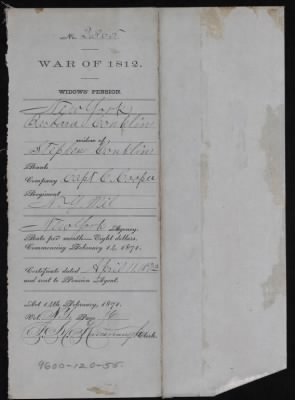 No. 2805
WAR OF 1812.
WIDOWS' PENSION
New York
Conklin
widow of
Stephen Conklin
Rank
Company Capt C. Cooper
Regiment
N.Y. Mil
New York Agency.
Rate per month—Eight dollars.
Commencing February 14, 1871.
Certificate dated April 11, 1872
and sent to Pension Agent.
Act 14th February, 1871.
Vol. Page 16
Clerk.
9600-120-55.